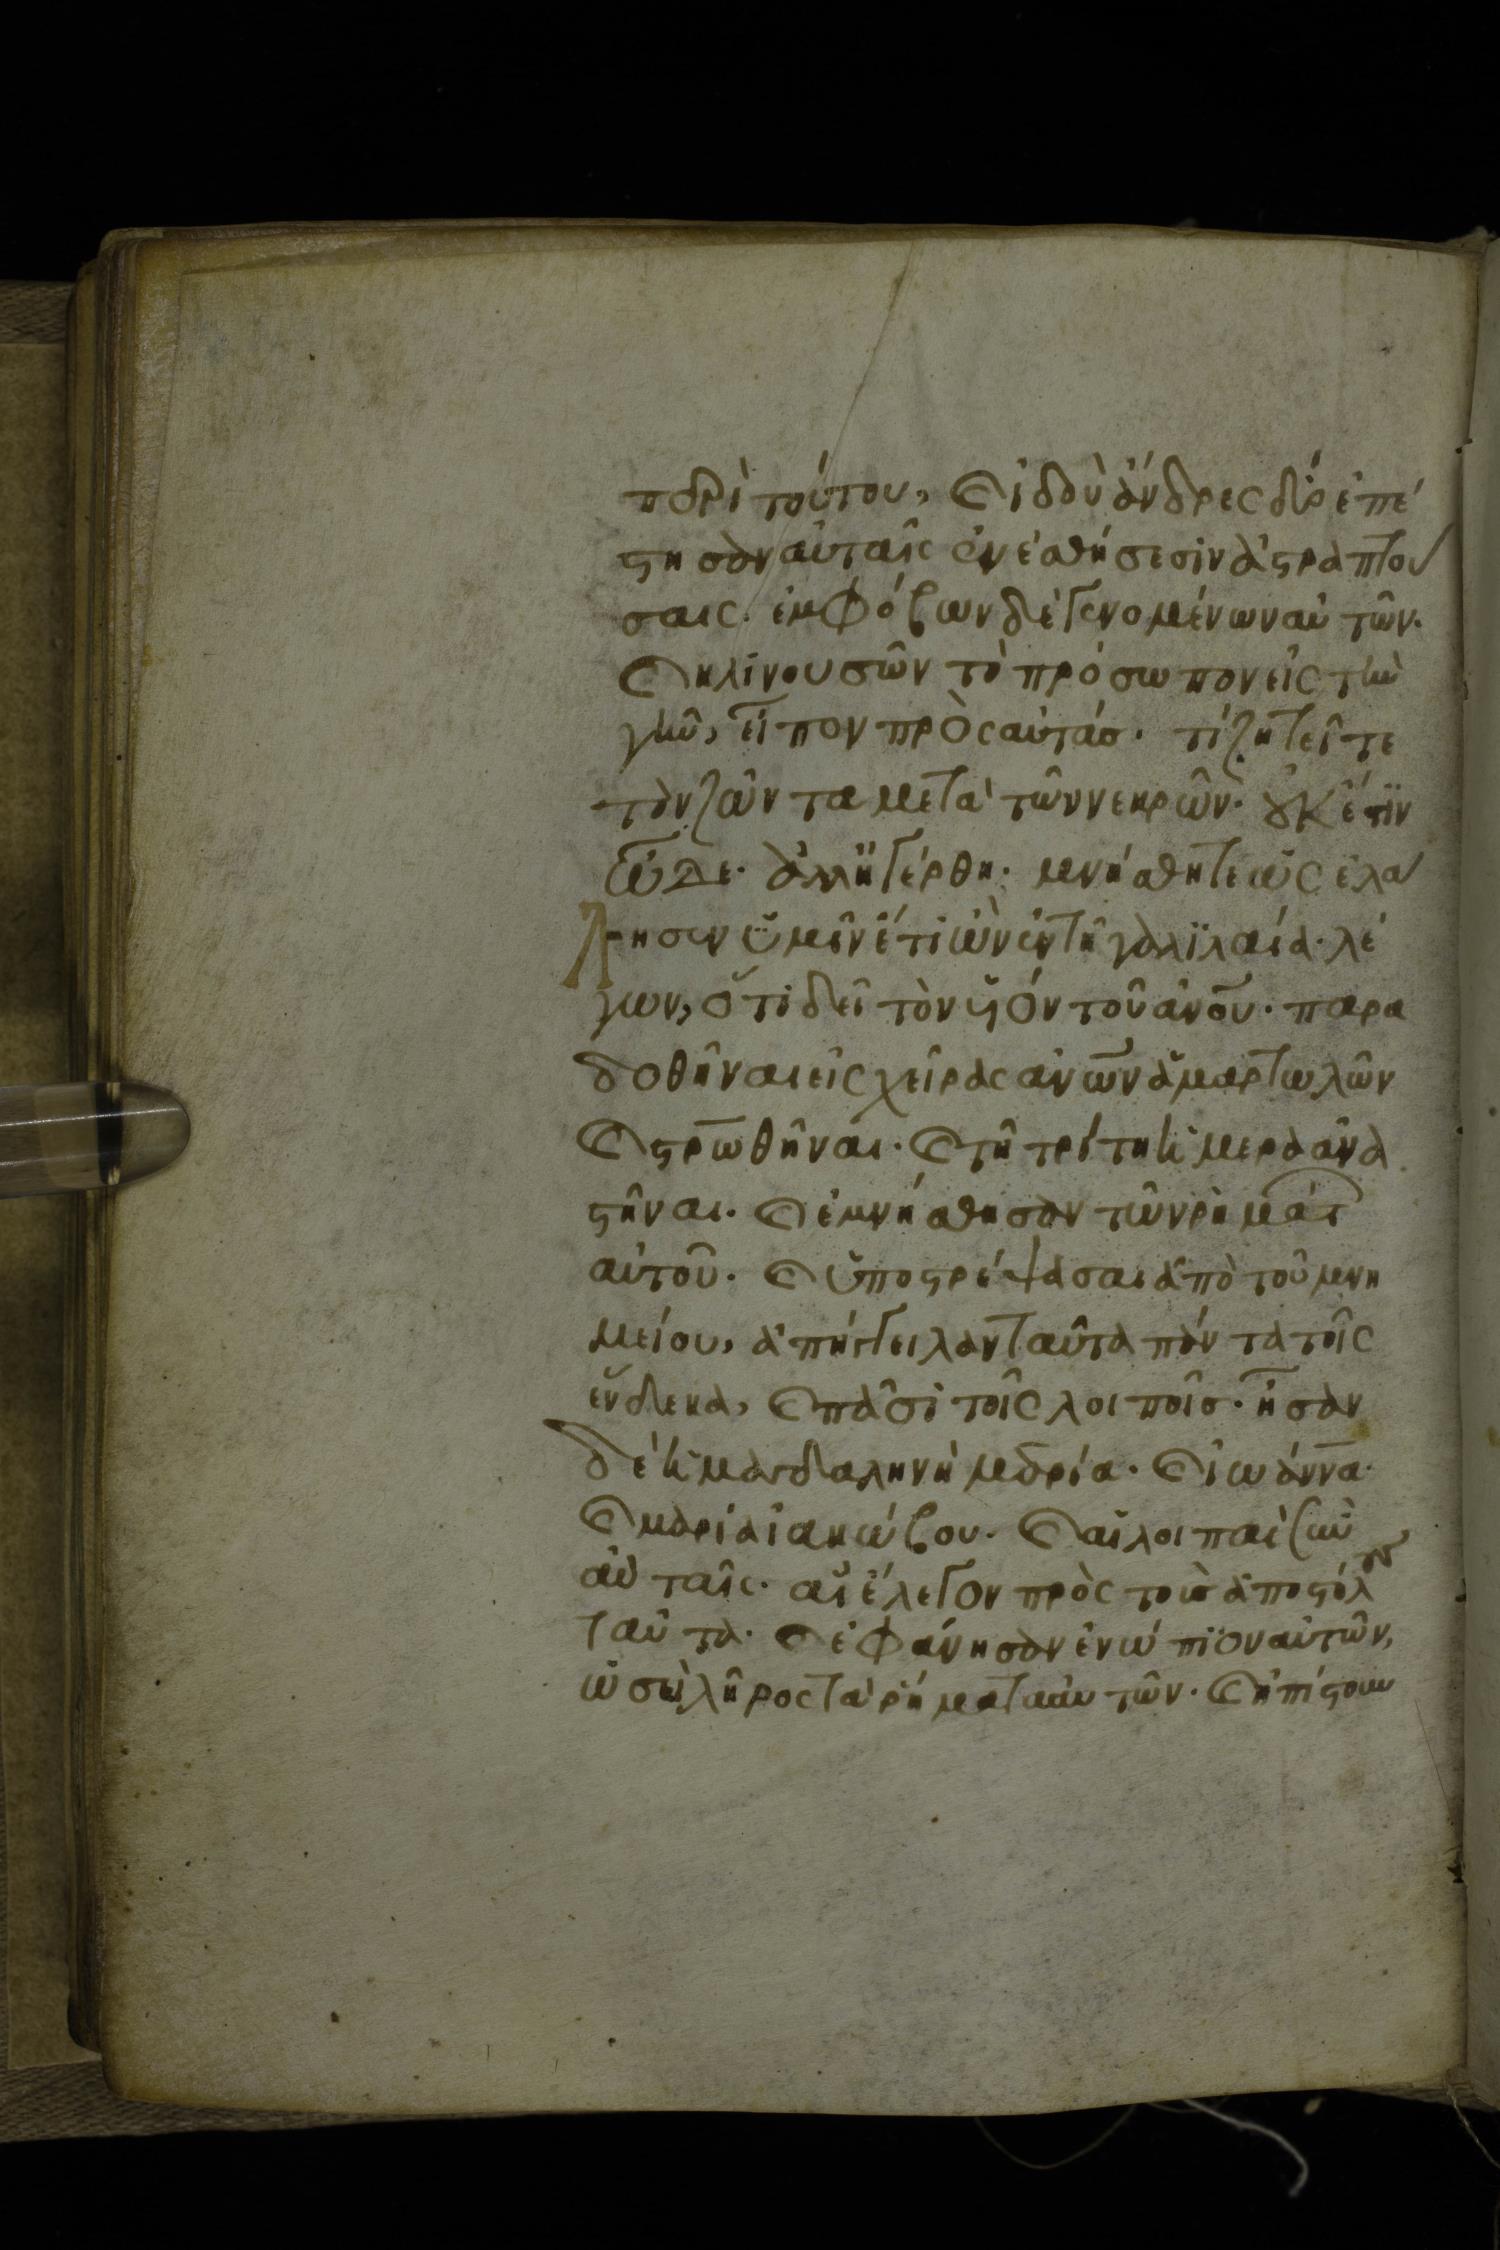 περὶ τούτου, καὶ ἰδοὺ ἄνδρες δύο ἐπέ
στησαν αὐταῖς ἐν ἐσθήσεσιν ἀστραπτού
σαις. ἐμφόβων δὲ γενομένων αὐτῶν.
καὶ κλίνουσῶν τὸ πρόσωπον εἰς τὴν
γῆν, εἶπον πρὸς αὐτάσ. τί ζητεῖτε
τὸν ζῶντα μετὰ τῶν νεκρῶν. οὐκ ἔστιν
ὧδε. ἀλλ ἠγέρθη. μνήσθητε ὡς ἐλά
λησεν ὑμῖν ἔτι ὢν ἐν τῆ γαλιλαία. λέ
γων, ὅτι δεῖ τὸν υἱὸν τοῦ ἀνου. παρα
δοθῆναι εἰς χεῖρας ἀνων ἁμαρτωλῶν
καὶ στρωθῆναι. καὶ τῆ τρίτη ἡμέρα ἀνα
στῆναι. καὶ ἐμνήσθησαν τῶν ρημάτ
αὐτοῦ. καὶ ὑποστρέψασαι ἀπὸ τοῦ μνη
μείου, ἀπήγγειλαν ταῦτα πάντα τοῖς
ἕνδεκα, καὶ πᾶσι τοῖς λοιποῖσ. ἦσαν
δὲ ἡ μαγδαληνὴ μαρία. καὶ ἰωάννα.
καὶ μαρία ἰακώβου. καὶ αἱ λοιπαὶ σὺν
αὐταῖς. αἳ ἔλεγον πρὸς τοὺσ ἀποστόλους
ταῦτα. καὶ ἐφάνησαν ἐνώπιον αὐτῶν,
ὡσεὶ λῆρος τὰ ρήματα αὐτῶν. καὶ ἠπίστουν